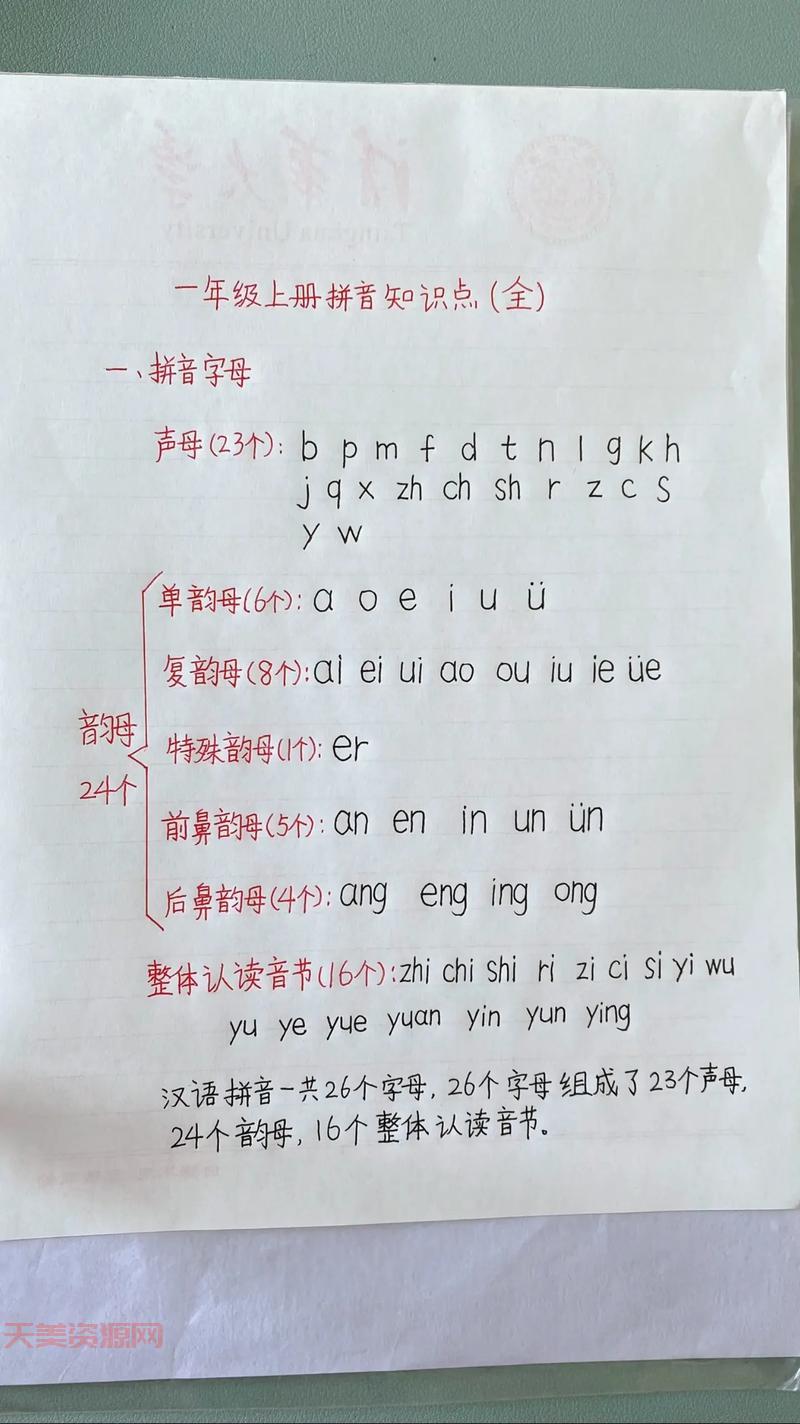 一年级上册拼音知识点(全)
一、拼音字母
声母(23个): b p m f d t n l g k h
j q x zh ch sh r z c s
y w
韵母
24个
单韵母(6个): a o e i u ü
复韵母(8个): ai ei ui ao ou iu ie üe
特殊韵母(1个): er
前鼻韵母(5个): an en in un ün
后鼻韵母(4个): ang eng ing ong
整体认读音节(16个): zhi chi shi ri zi ci si yi wu
yu ye yue yuan yin yun ying
汉语拼音一共26个字母, 26个字母组成了23个声母,
24个韵母, 16个整体认读音节。
天美资源网